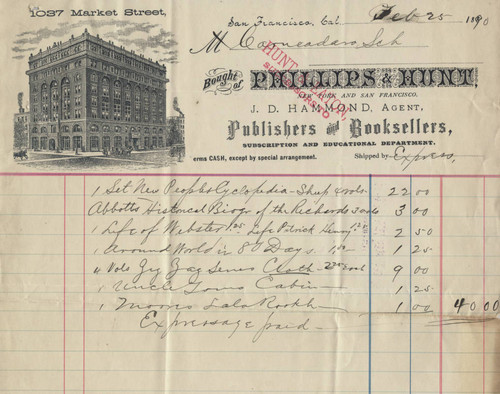 1037 Market Street,
San Francisco, Cal Feb 25 1890
M Sch
Bought of PHILLIPS & HUNT,
YORK AND SAN FRANCISCO.
HUNT
J. D. HAMMOND, AGENT,
Publishers and Booksellers,
SUBSCRIPTION AND EDUCATIONAL DEPARTMENT.
erms CASH, except by special arrangement. Shipped by Express,
1 Set New Peoples Cyclopedia - Sheep 22 00
Abbotts Historical Biogs of the Richards 3 00
1 Life of Webster 1.25 Life Patrick Henry 1.25 2 50
1 Around World in 80 Days 1 25
Vols Zig Zag Series Cloth 9 00
1 Uncle Toms Cabin 1 25
1 Moores Lala Rookh 1 00 40.00
Expressage paid